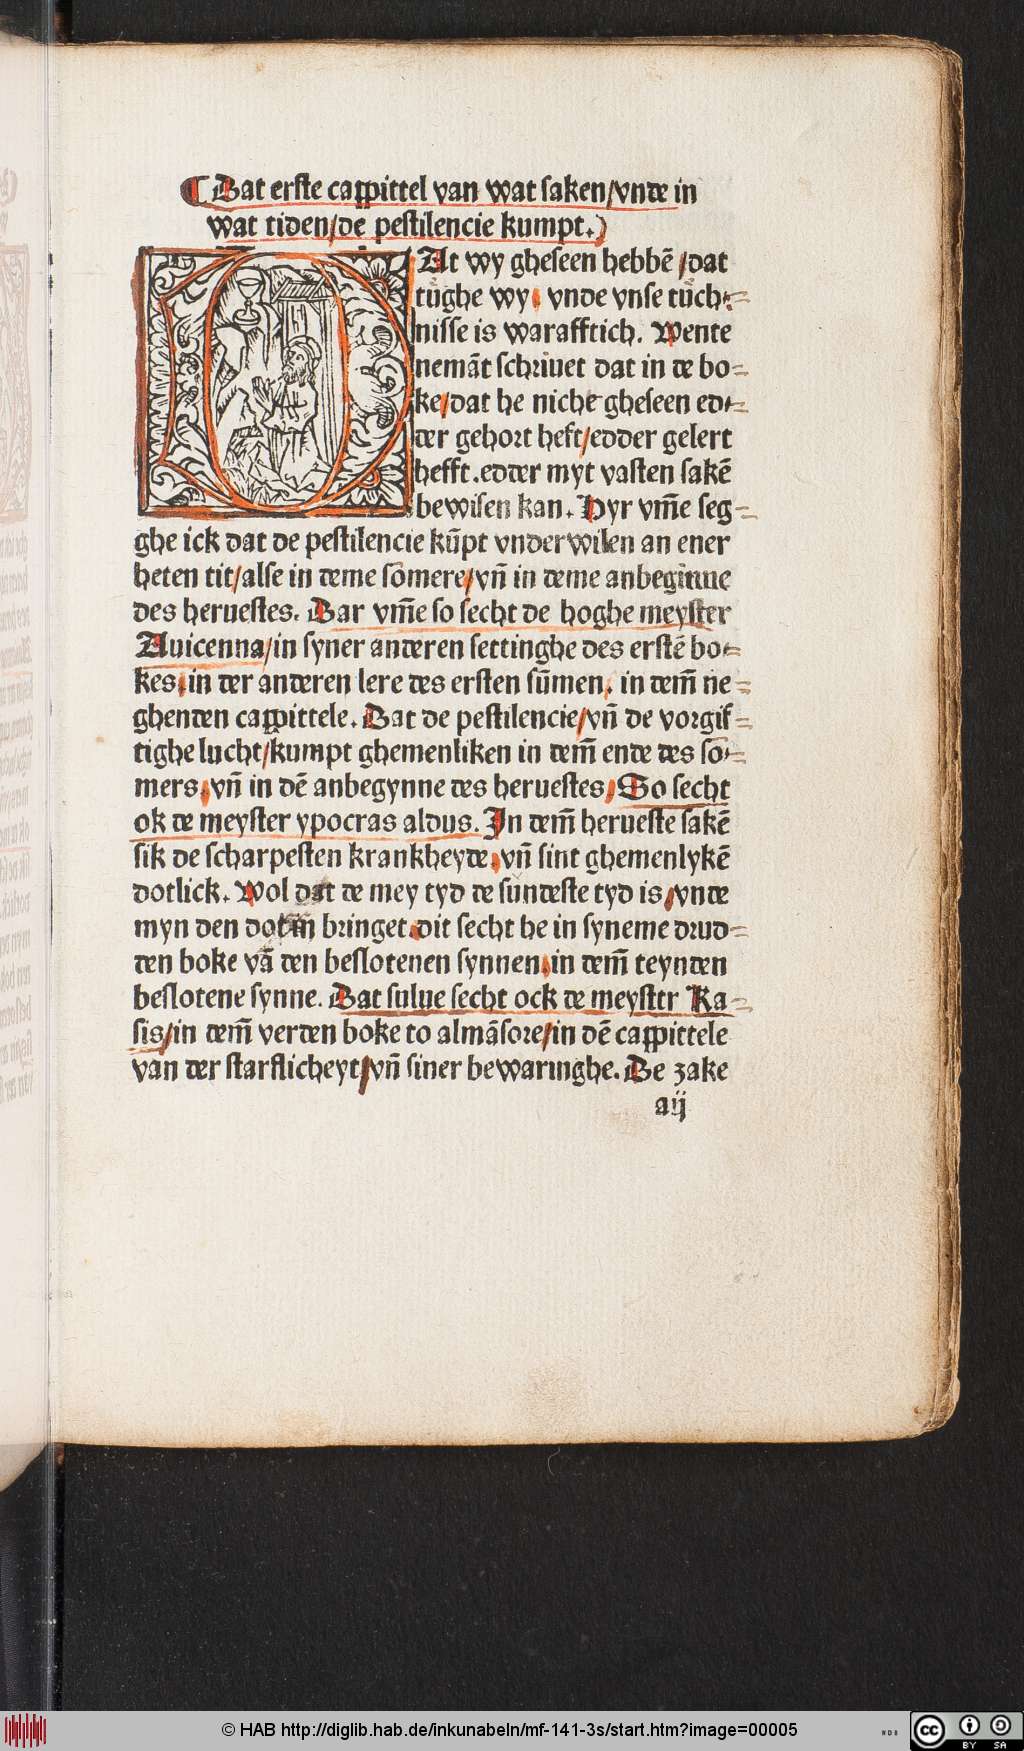 ¶ Dat erste cappittel van wat saken/vnde in
wat tiden/de pestilencie kumpt.)
DAt wy gheseen hebbē/dat
tůghe wy, vnde vnse tůch⸗
nisse is warafftich. Wente
nemāt schriuet dat in de bo⸗
ke/dat he nicht gheseen ed⸗
der gehort heft/edder gelert
hefft.edder myt vasten sakē
bewisen kan. Hyr vm̄e seg⸗
ghe ick dat de pestilencie kūpt vnderwilen an ener
heten tit/alse in deme sōmere/vn̄ in deme anbeginne
des heruestes. Dar vm̄e so secht de hoghe meyster
Auicenna/in syner anderen settinghe des erstē bo⸗
kes,in der anderen lere des ersten sūmen, in dem̄ ne⸗
ghenden cappittele. Dat de pestilencie/vn̄ de vorgif⸗
tighe lucht/kumpt ghemenliken in dem̄ ende des so⸗
mers,vn̄ in dē anbegynne des heruestes/So secht
ok de meyster ypocras aldus. In dem̄ herueste sakē
sik de scharpesten krankheyde,vn̄ sint ghemenlykē
dotlick. Wol dat de mey tyd de sundeste tyd is,vnde
myn den dotm̄ bringet.dit secht he in syneme drud⸗
den boke vā den beslotenen synnen,in dem̄ teynden
beslotene synne. Dat sulue secht ock de meyster Ra⸗
sis/in dem̄ verden boke to almāsore/in dē cappittele
van der starflicheyt/vn̄ siner bewaringhe. De zake
aij
© HAB http://diglib.hab.de/inkunabeln/mf-141-3s/start.htm?image=00005
WDB
cc BY SA